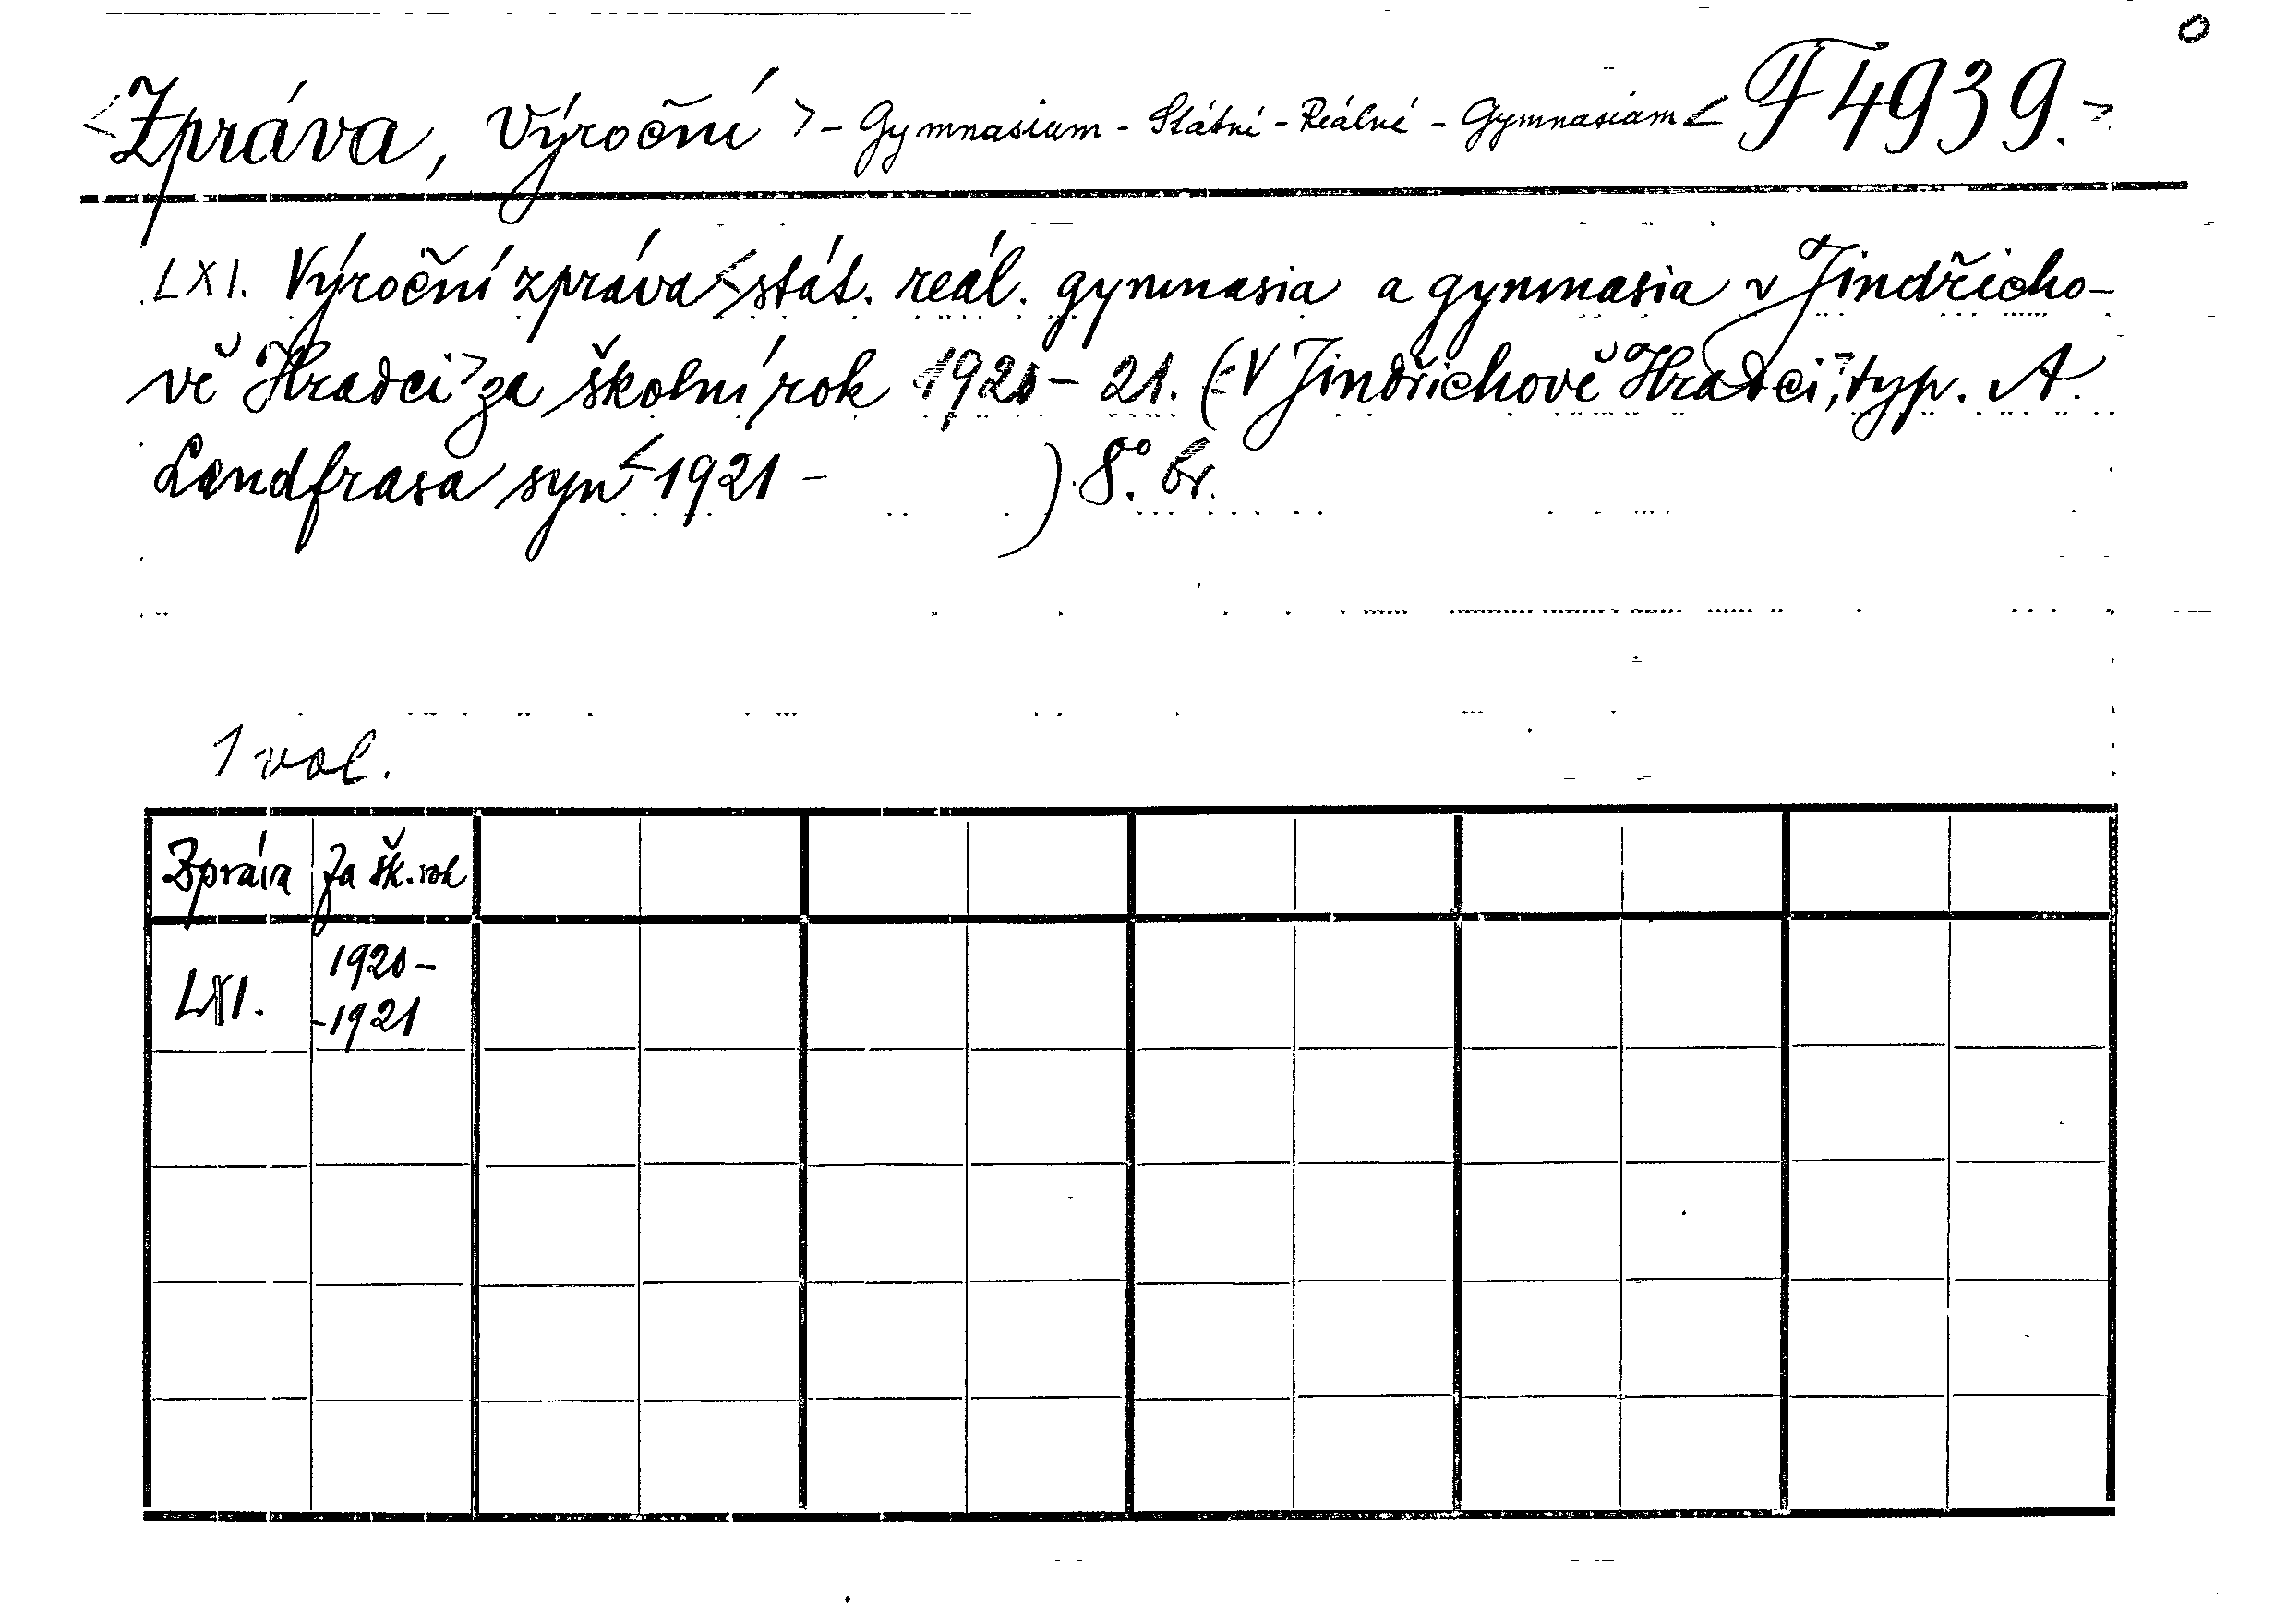 <Zpráva, výroční> - Gymnasium - Státní - Reálné - Gymnasium < F 4939.>
LXI. Výroční zpráva <stát. reál. gymnasia a gymnasia v Jindřicho-
vě Hradci> za školní rok 1920 - 21. (<V Jindřichově Hradci,> typ. A.
Landfrasa syn < 1921 - ) 8°. br.
1 vol.
Zpráva za šk. rok
LXI. 1920 -
- 1921